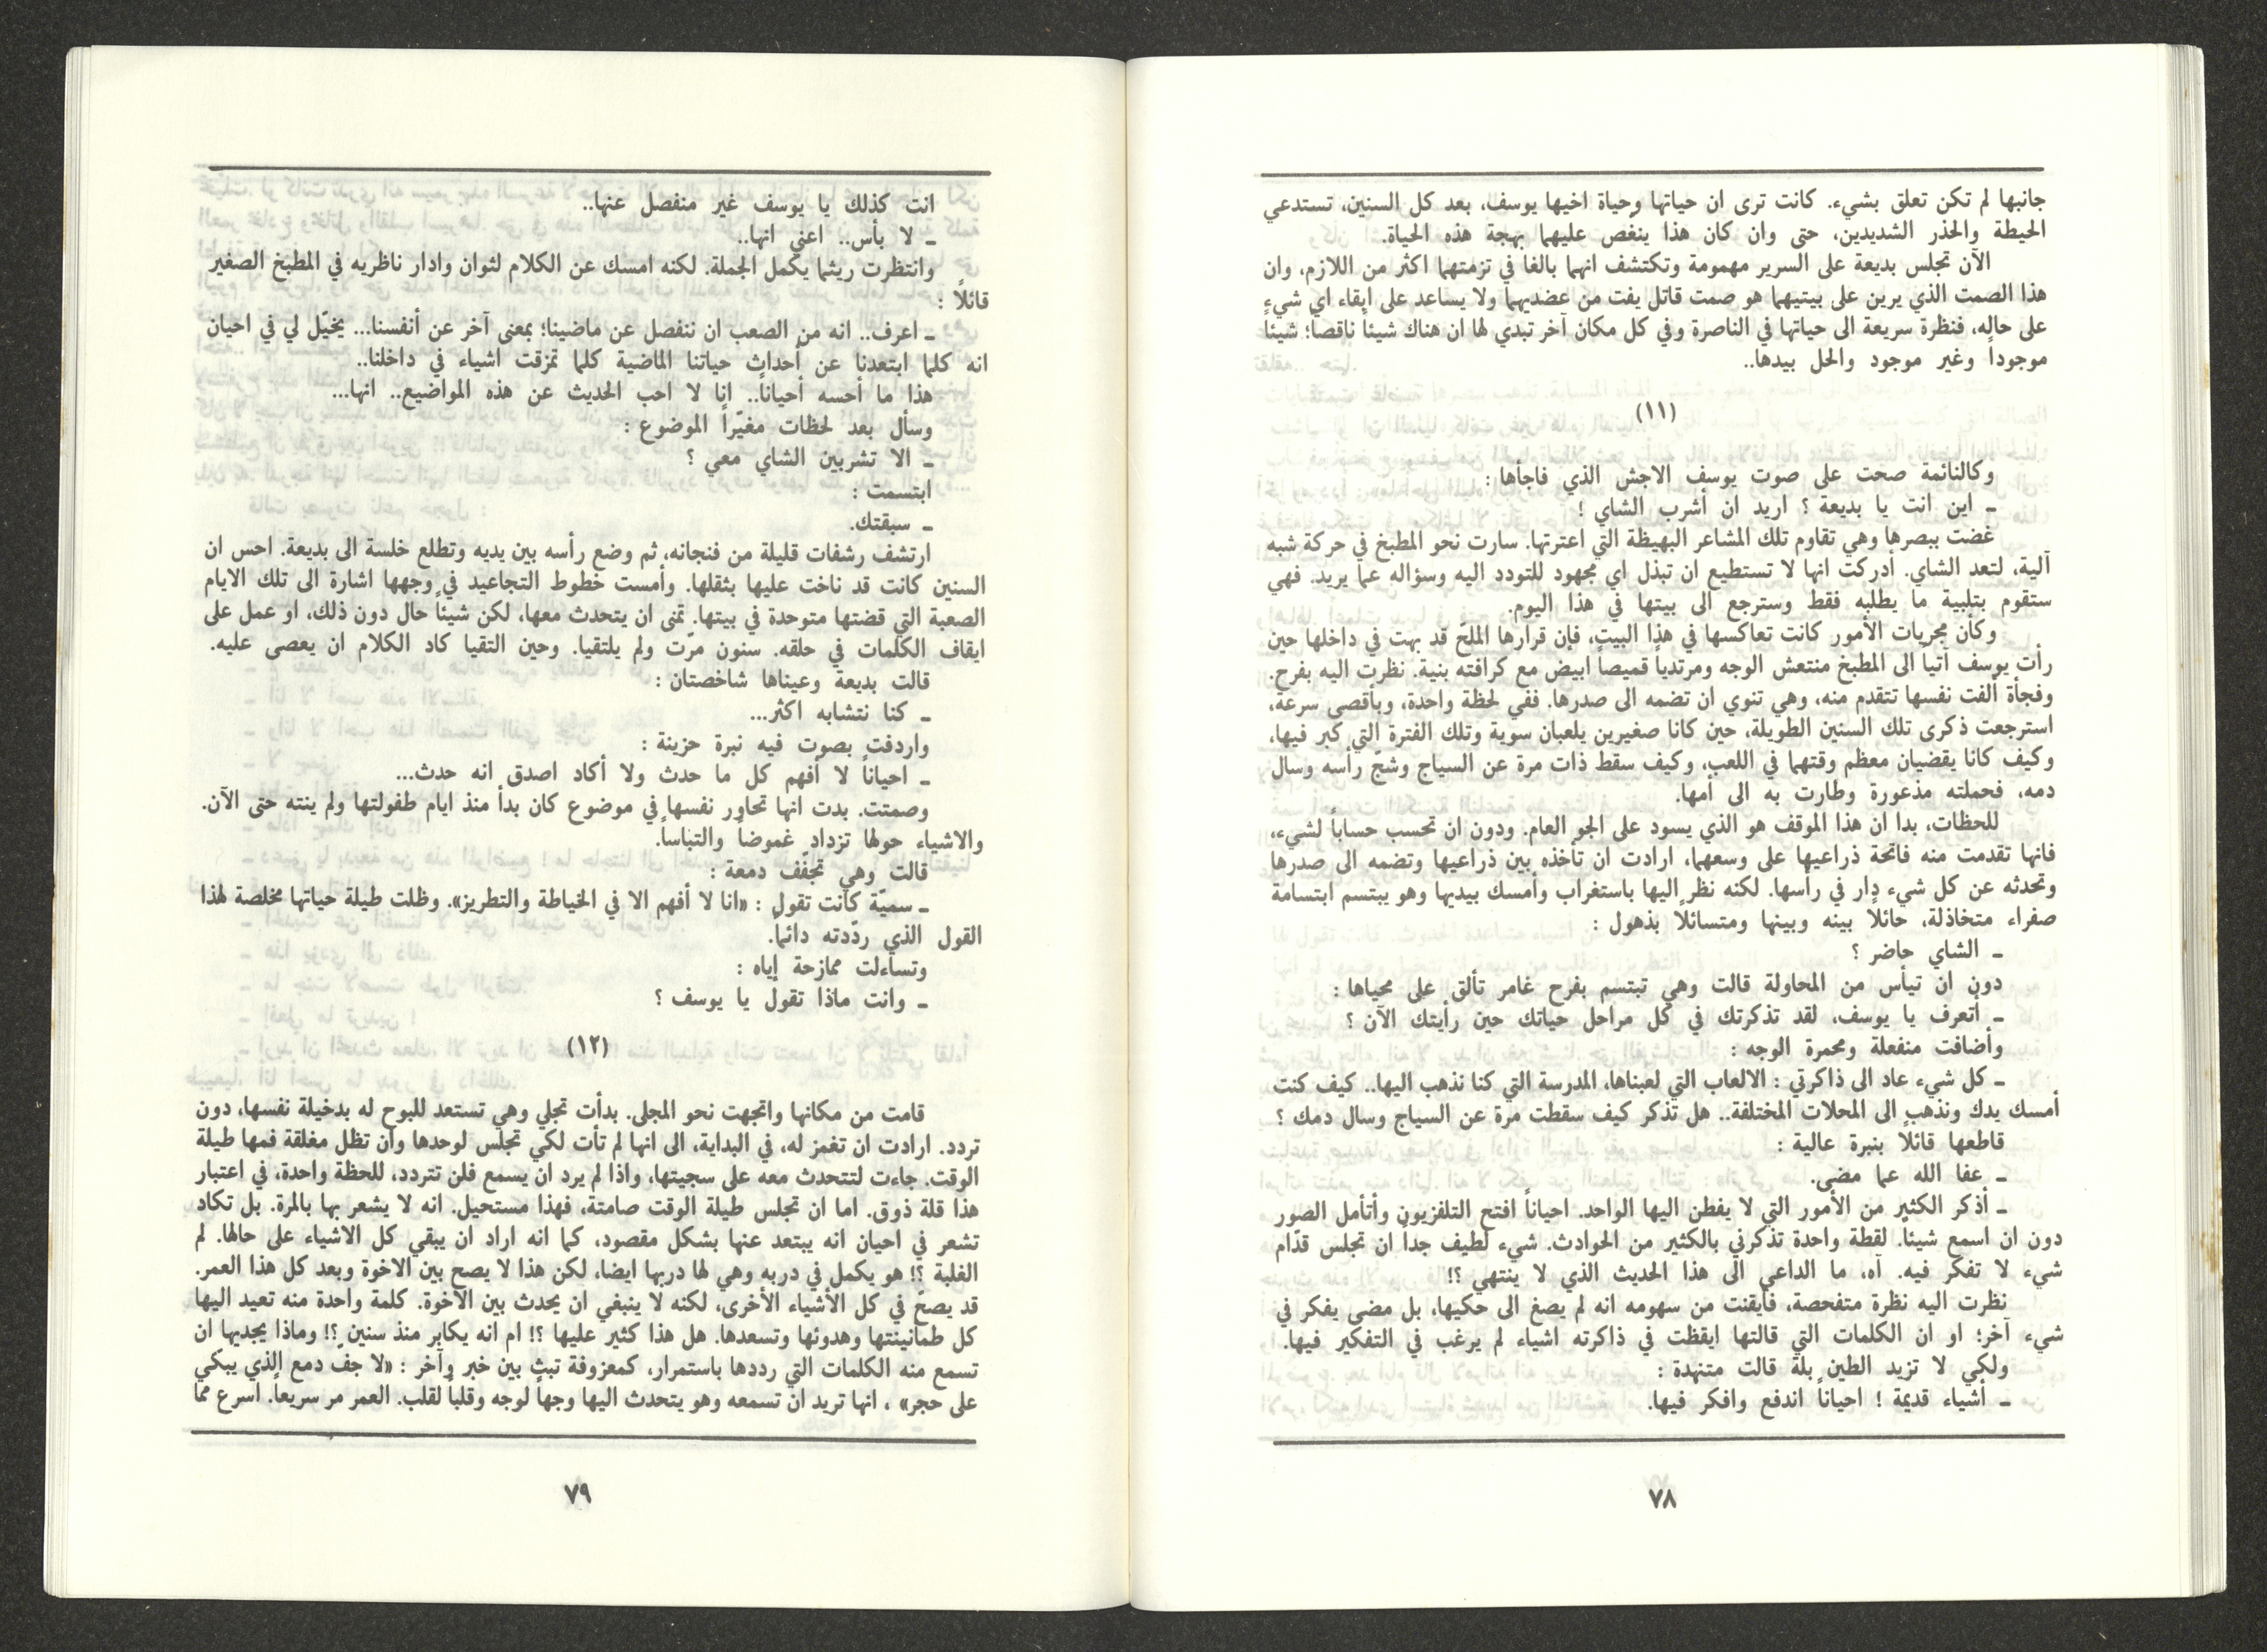 جانبها لم تكن تعلق بشيء. كانت ترى ان حياتها وحياة اخيها يوسف، بعد كل السنين، تستدعي
الحيطة والحذر الشديدين، حتى وان كان هذا ينغص عليهما بهجة هذه الحياة.
الآن تجلس بديعة على السرير مهمومة وتكتشف انهما بالغا في تزمتهما اكثر من اللازم، وان
هذا الصمت الذي يرين على بيتيهما هو صمت قاتل يفت من عضديهما ولا يساعد على ابقاء اي شيءٍ
على حاله، فنظرة سريعة الى حياتها في الناصرة وفي كل مكان آخر تبدي لها ان هناك شيئاً ناقصاً؛ شيئاً
موجوداً وغير موجود والحل بيدها..
(١١)
وكالنائمة صحت على صوت يوسف الاجش الذي فاجأها :
ـ اين انت يا بديعة ؟ اريد ان أشرب الشاي !
غضت ببصرها وهي تقاوم تلك المشاعر البهيظة التي اعترتها. سارت نحو المطبخ في حركة شبه
آلية، لتعد الشاي. أدركت انها لا تستطيع ان تبذل اي مجهود للتودد اليه وسؤاله عما يريد. فهي
ستقوم بتلبية ما يطلبه فقط وسترجع الى بيتها في هذا اليوم.
وكأن مجريات الأمور كانت تعاكسها في هذا البيت، فإن قرارها الملحّ قد بهت في داخلها حين
رأت يوسف آتياً الى المطبخ منتعش الوجه ومرتدياً قميصاً ابيض مع كرافته بنية. نظرت اليه بفرح.
وفجأة ألفت نفسها تتقدم منه، وهي تنوي ان تضمه الى صدرها. ففي لحظة واحدة، وبأقصى سرعة،
استرجعت ذكرى تلك السنين الطويلة، حين كانا صغيرين يلعبان سوية وتلك الفترة التي كبر فيها،
وكيف كانا يقضيان معظم وقتهما في اللعب، وكيف سقط ذات مرة عن السياج وشجّ رأسه وسال
دمه، فحملته مذعورة وطارت به الى أمها.
للحظات، بدا ان هذا الموقف هو الذي يسود على الجو العام. ودون ان تحسب حساباً لشيء،
فانها تقدمت منه فاتحة ذراعيها على وسعهما، ارادت ان تأخذه بين ذراعيها وتضمه الى صدرها
وتحدثه عن كل شيء دار في رأسها. لكنه نظر اليها باستغراب وأمسك بيديها وهو يبتسم ابتسامة
صفراء متخاذلة، حائلاً بينه وبينها ومتسائلاً بذهول :
ـ الشاي حاضر ؟
دون ان تيأس من المحاولة قالت وهي تبتسم بفرح غامر تألق على محياها :
ـ أتعرف يا يوسف، لقد تذكرتك في كل مراحل حياتك حين رأيتك الآن ؟
وأضافت منفعلة ومحمرة الوجه :
ـ كل شيء عاد الى ذاكرتي : الالعاب التي لعبناها، المدرسة التي كنا نذهب اليها.. كيف كنت
أمسك يدك ونذهب الى المحلات المختلفة.. هل تذكر كيف سقطت مرة عن السياج وسال دمك ؟
قاطعها قائلاً بنبرة عالية :
ـ عفا الله عما مضى.
ـ أذكر الكثير من الأمور التي لا يفطن اليها الواحد. احياناً افتح التلفزيون وأتأمل الصور
دون ان اسمع شيئاً. لقطة واحدة تذكرني بالكثير من الحوادث. شيء لطيف جداً ان تجلس قدّام
شيء لا تفكر فيه. آه، ما الداعي الى هذا الحديث الذي لا ينتهي ؟!
نظرت اليه نظرة متفحصة، فأيقنت من سهومه انه لم يصغ الى حكيها، بل مضى يفكر في
شيء آخر؛ او ان الكلمات التي قالتها ايقظت في ذاكرته اشياء لم يرغب في التفكير فيها.
ولكي لا تزيد الطين بلة قالت متنهدة :
ـ أشياء قديمة ! احياناً اندفع وافكر فيها.
٧٨
انت كذلك يا يوسف غير منفصل عنها..
ـ لا بأس.. اعني انها..
وانتظرت ريثما يكمل الجملة. لكنه امسك عن الكلام لثوان وادار ناظريه في المطبخ الصغير
قائلاً :
ـ اعرف.. انه من الصعب ان ننفصل عن ماضينا؛ بمعنى آخر عن أنفسنا... يخيّل لي في احيان
انه كلما ابتعدنا عن أحداث حياتنا الماضية كلما تمزقت اشياء في داخلنا..
هذا ما أحسه أحياناً.. انا لا احب الحديث عن هذه المواضيع.. انها...
وسأل بعد لحظات مغيّراً الموضوع :
ـ الا تشربين الشاي معي ؟
ابتسمت :
ـ سبقتك.
ارتشف رشفات قليلة من فنجانه، ثم وضع رأسه بين يديه وتطلع خلسة الى بديعة. احس ان
السنين كانت قد ناخت عليها بثقلها. وأمست خطوط التجاعيد في وجهها اشارة الى تلك الايام
الصعبة التي قضتها متوحدة في بيتها. تمنى ان يتحدث معها، لكن شيئاً حال دون ذلك، او عمل على
ايقاف الكلمات في حلقه. سنون مرّت ولم يلتقيا. وحين التقيا كاد الكلام ان يعصى عليه.
قالت بديعة وعيناها شاخصتان :
ـ كنا نتشابه اكثر...
واردفت بصوت فيه نبرة حزينة :
ـ احياناً لا أفهم كل ما حدث ولا أكاد اصدق انه حدث...
وصمتت. بدت انها تحاور نفسها في موضوع كان بدأ منذ ايام طفولتها ولم ينته حتى الآن.
والاشياء حولها تزداد غموضاً والتباساً.
قالت وهي تجفّف دمعة :
ـ سميّة كانت تقول : «انا لا أفهم الا في الخياطة والتطريز». وظلت طيلة حياتها مخلصة لهذا
القول الذي ردّدته دائماً.
وتساءلت ممازحة إياه :
ـ وانت ماذا تقول يا يوسف ؟
(١٢)
قامت من مكانها واتجهت نحو المجلى. بدأت تجلي وهي تستعد للبوح له بدخيلة نفسها، دون
تردد. ارادت ان تغمز له، في البداية، الى انها لم تأت لكي تجلس لوحدها وان تظل مغلقة فمها طيلة
الوقت. جاءت لتتحدث معه على سجيتها، واذا لم يرد ان يسمع فلن تتردد، للحظة واحدة، في اعتبار
هذا قلة ذوق. اما ان تجلس طيلة الوقت صامتة، فهذا مستحيل. انه لا يشعر بها بالمرة. بل تكاد
تشعر في احيان انه يبتعد عنها بشكل مقصود، كما انه اراد ان يبقي كل الاشياء على حالها. لم
الغلبة ؟! هو يكمل في دربه وهي لها دربها ايضا، لكن هذا لا يصح بين الاخوة وبعد كل هذا العمر.
قد يصحّ في كل الأشياء الأخرى، لكنه لا ينبغي ان يحدث بين الأخوة. كلمة واحدة منه تعيد اليها
كل طمأنينتها وهدوئها وتسعدها. هل هذا كثير عليها ؟! ام انه يكابر منذ سنين ؟! وماذا يجديها ان
تسمع منه الكلمات التي رددها باستمرار، كمعزوفة تبث بين خبر وآخر : «لا جفّ دمع الذي يبكي
على حجر» ، انها تريد ان تسمعه وهو يتحدث اليها وجهاً لوجه وقلباً لقلب. العمر مر سريعاً. اسرع مما
٧٩